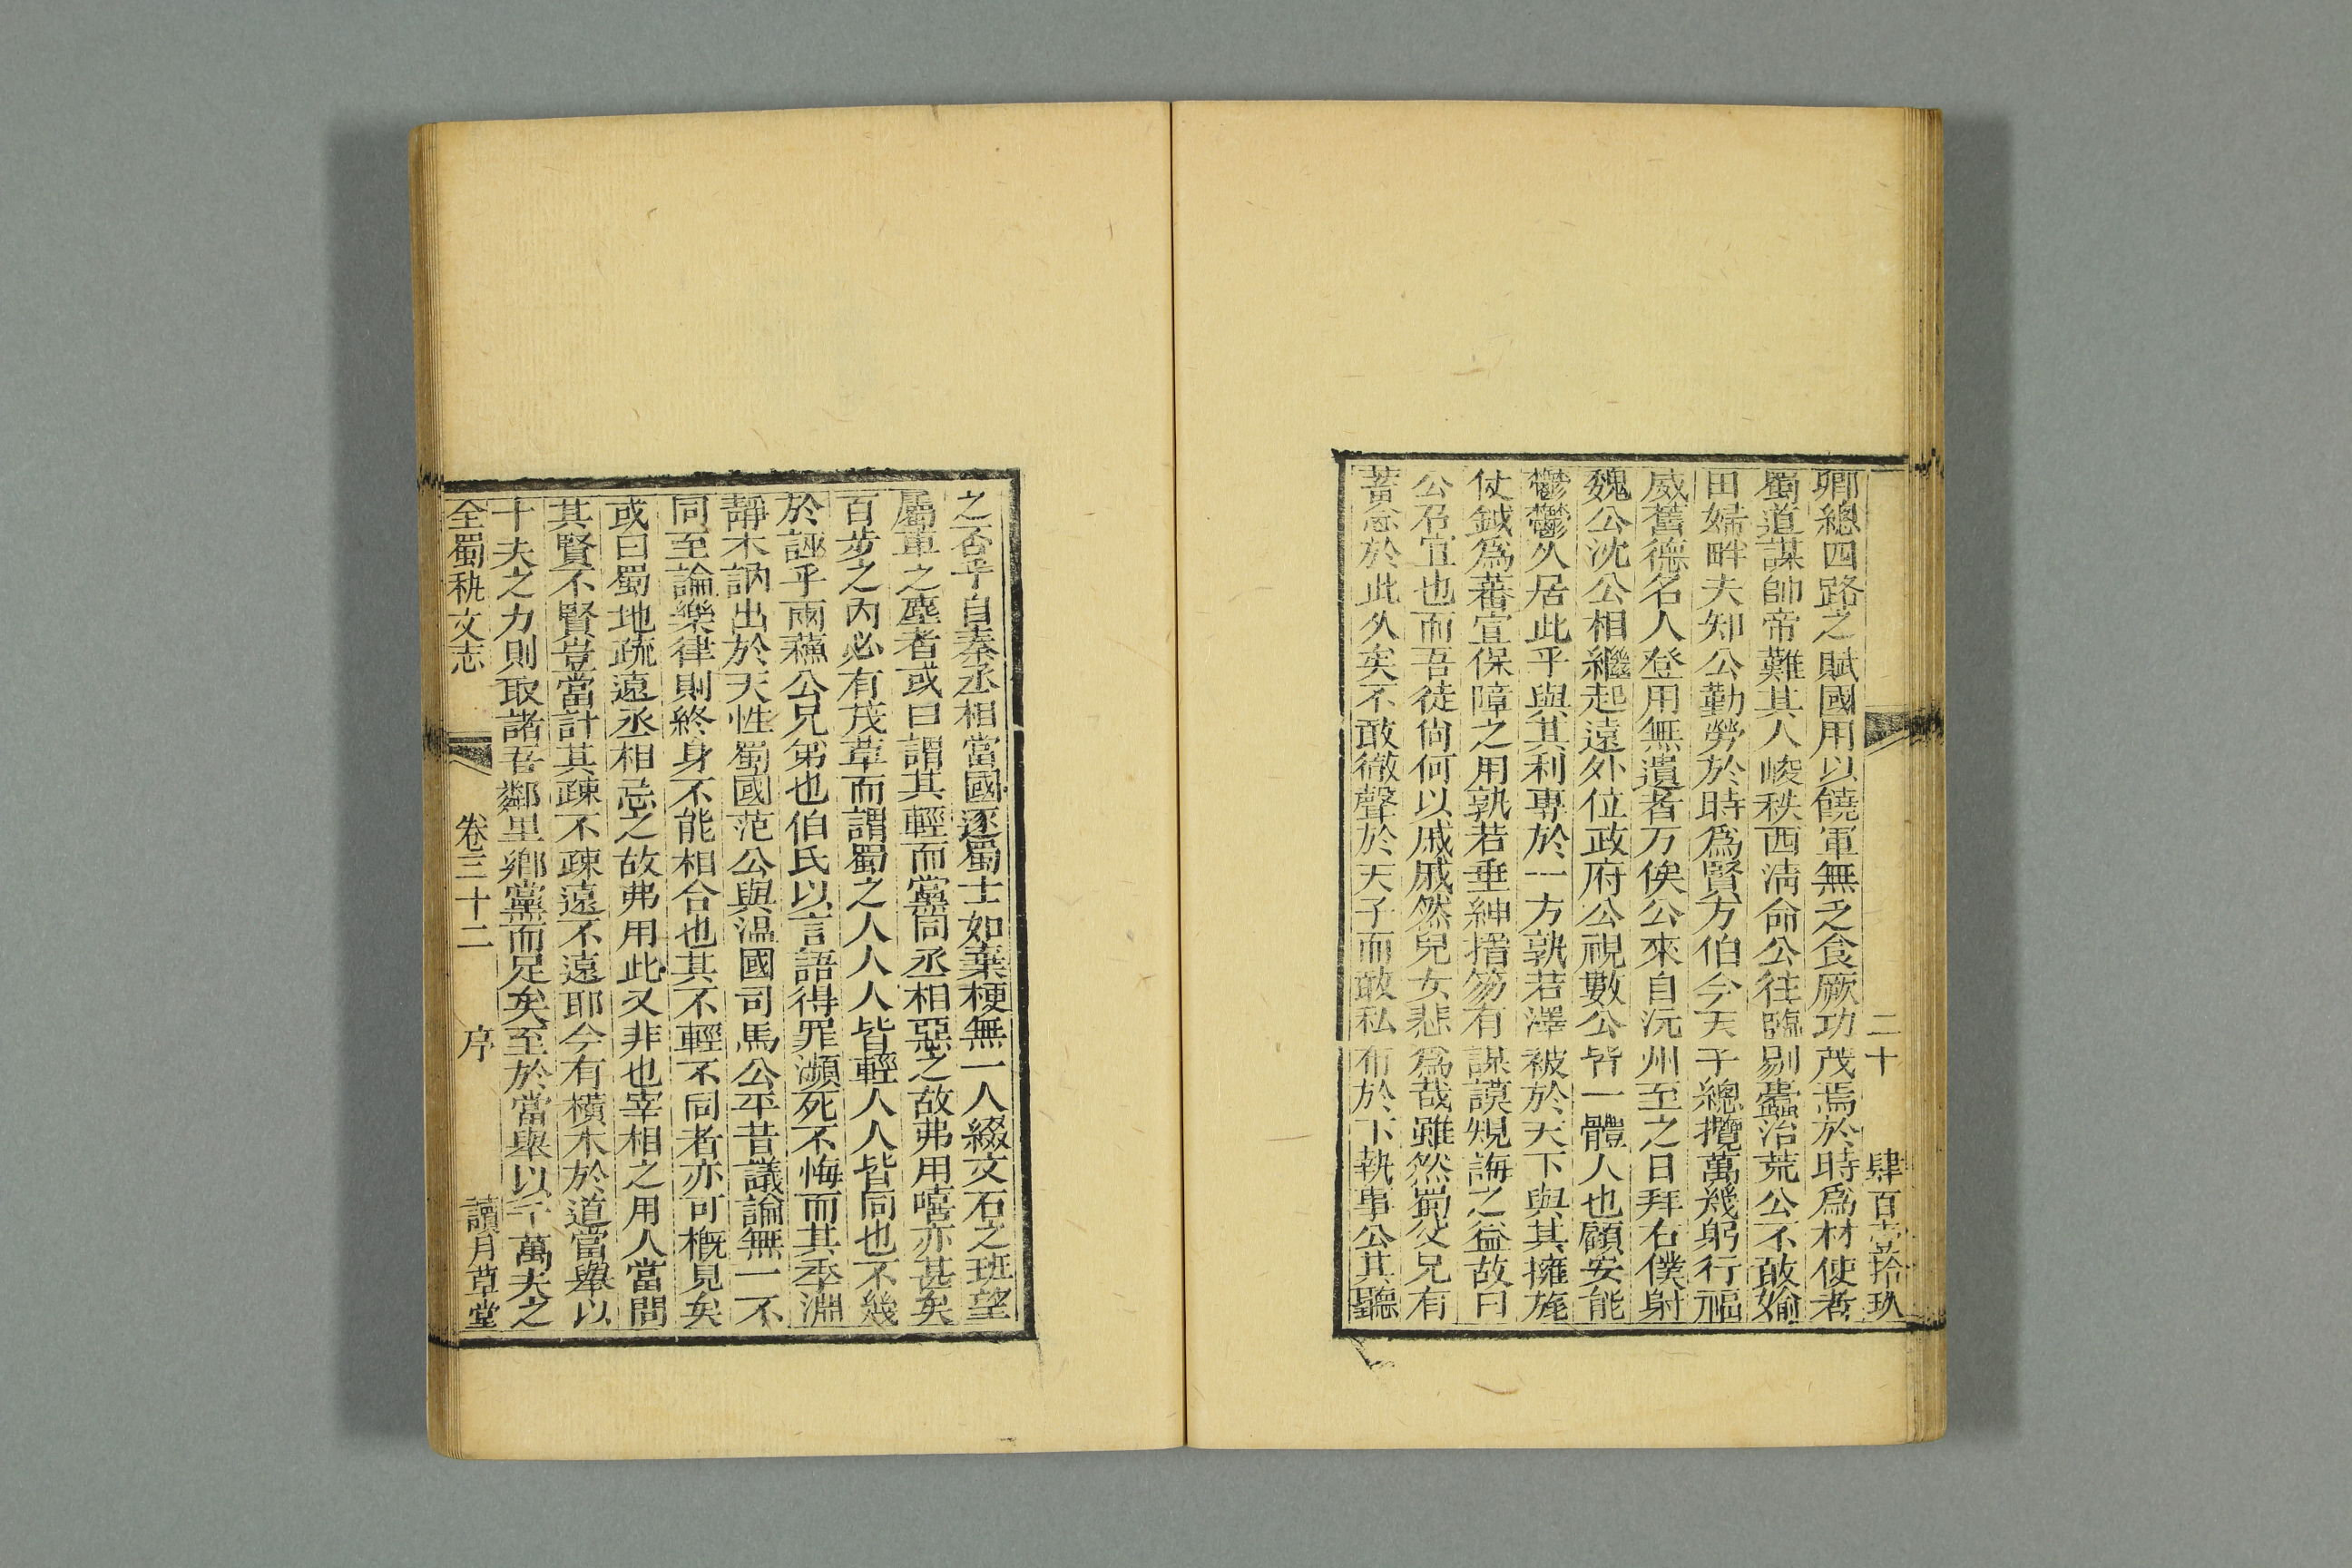 二十　肆百壹拾玖
卿總四路之賦國用以饒軍無乏食厥功茂焉於時爲材使者
蜀道謀帥帝難其人峻秩西淸命公往臨剔蠹治荒公不敢媮
田婦畔夫知公勤勞於時爲賢方伯今天子總攬萬幾躬行福
威舊德名人登用無遺者万俟公來自沅州至之日拜右僕射
魏公沈公相繼起遠外位政府公視數公皆一體人也顧安能
鬱鬱久居此乎與其利專於一方孰若澤被於天下與其擁旄
仗鉞爲蕃宣保障之用孰若垂紳搢笏有謀謨規誨之益故曰
公召宜也而吾徒尙何以戚戚然兒女悲爲哉雖然蜀父兄有
蓄念於此久矣不敢徹聲於天子而敢私布於下執事公其聽
之否乎自秦丞相當國逐蜀士如棄梗無一人綴文石之班望
屬車之塵者或曰謂其輕而黨同丞相惡之故弗用嘻亦甚矣
百步之內必有茂草而謂蜀之人人人皆輕人人皆同也不幾
於誣乎兩蘇公兄弟也伯氏以言語得罪瀕死不悔而其季淵
靜木訥出於天性蜀國范公與温國司馬公平昔議論無一不
同至論樂律則終身不能相合也其不輕不同者亦可槪見矣
或曰蜀地疏遠丞相忌之故弗用此又非也宰相之用人當問
其賢不賢豈當計其疎不疎遠不遠耶今有橫木於道當舉以
十夫之力則取諸吾鄰里鄉黨而足矣至於當舉以千萬夫之
全蜀秇文志　卷三十二　序　讀月草堂